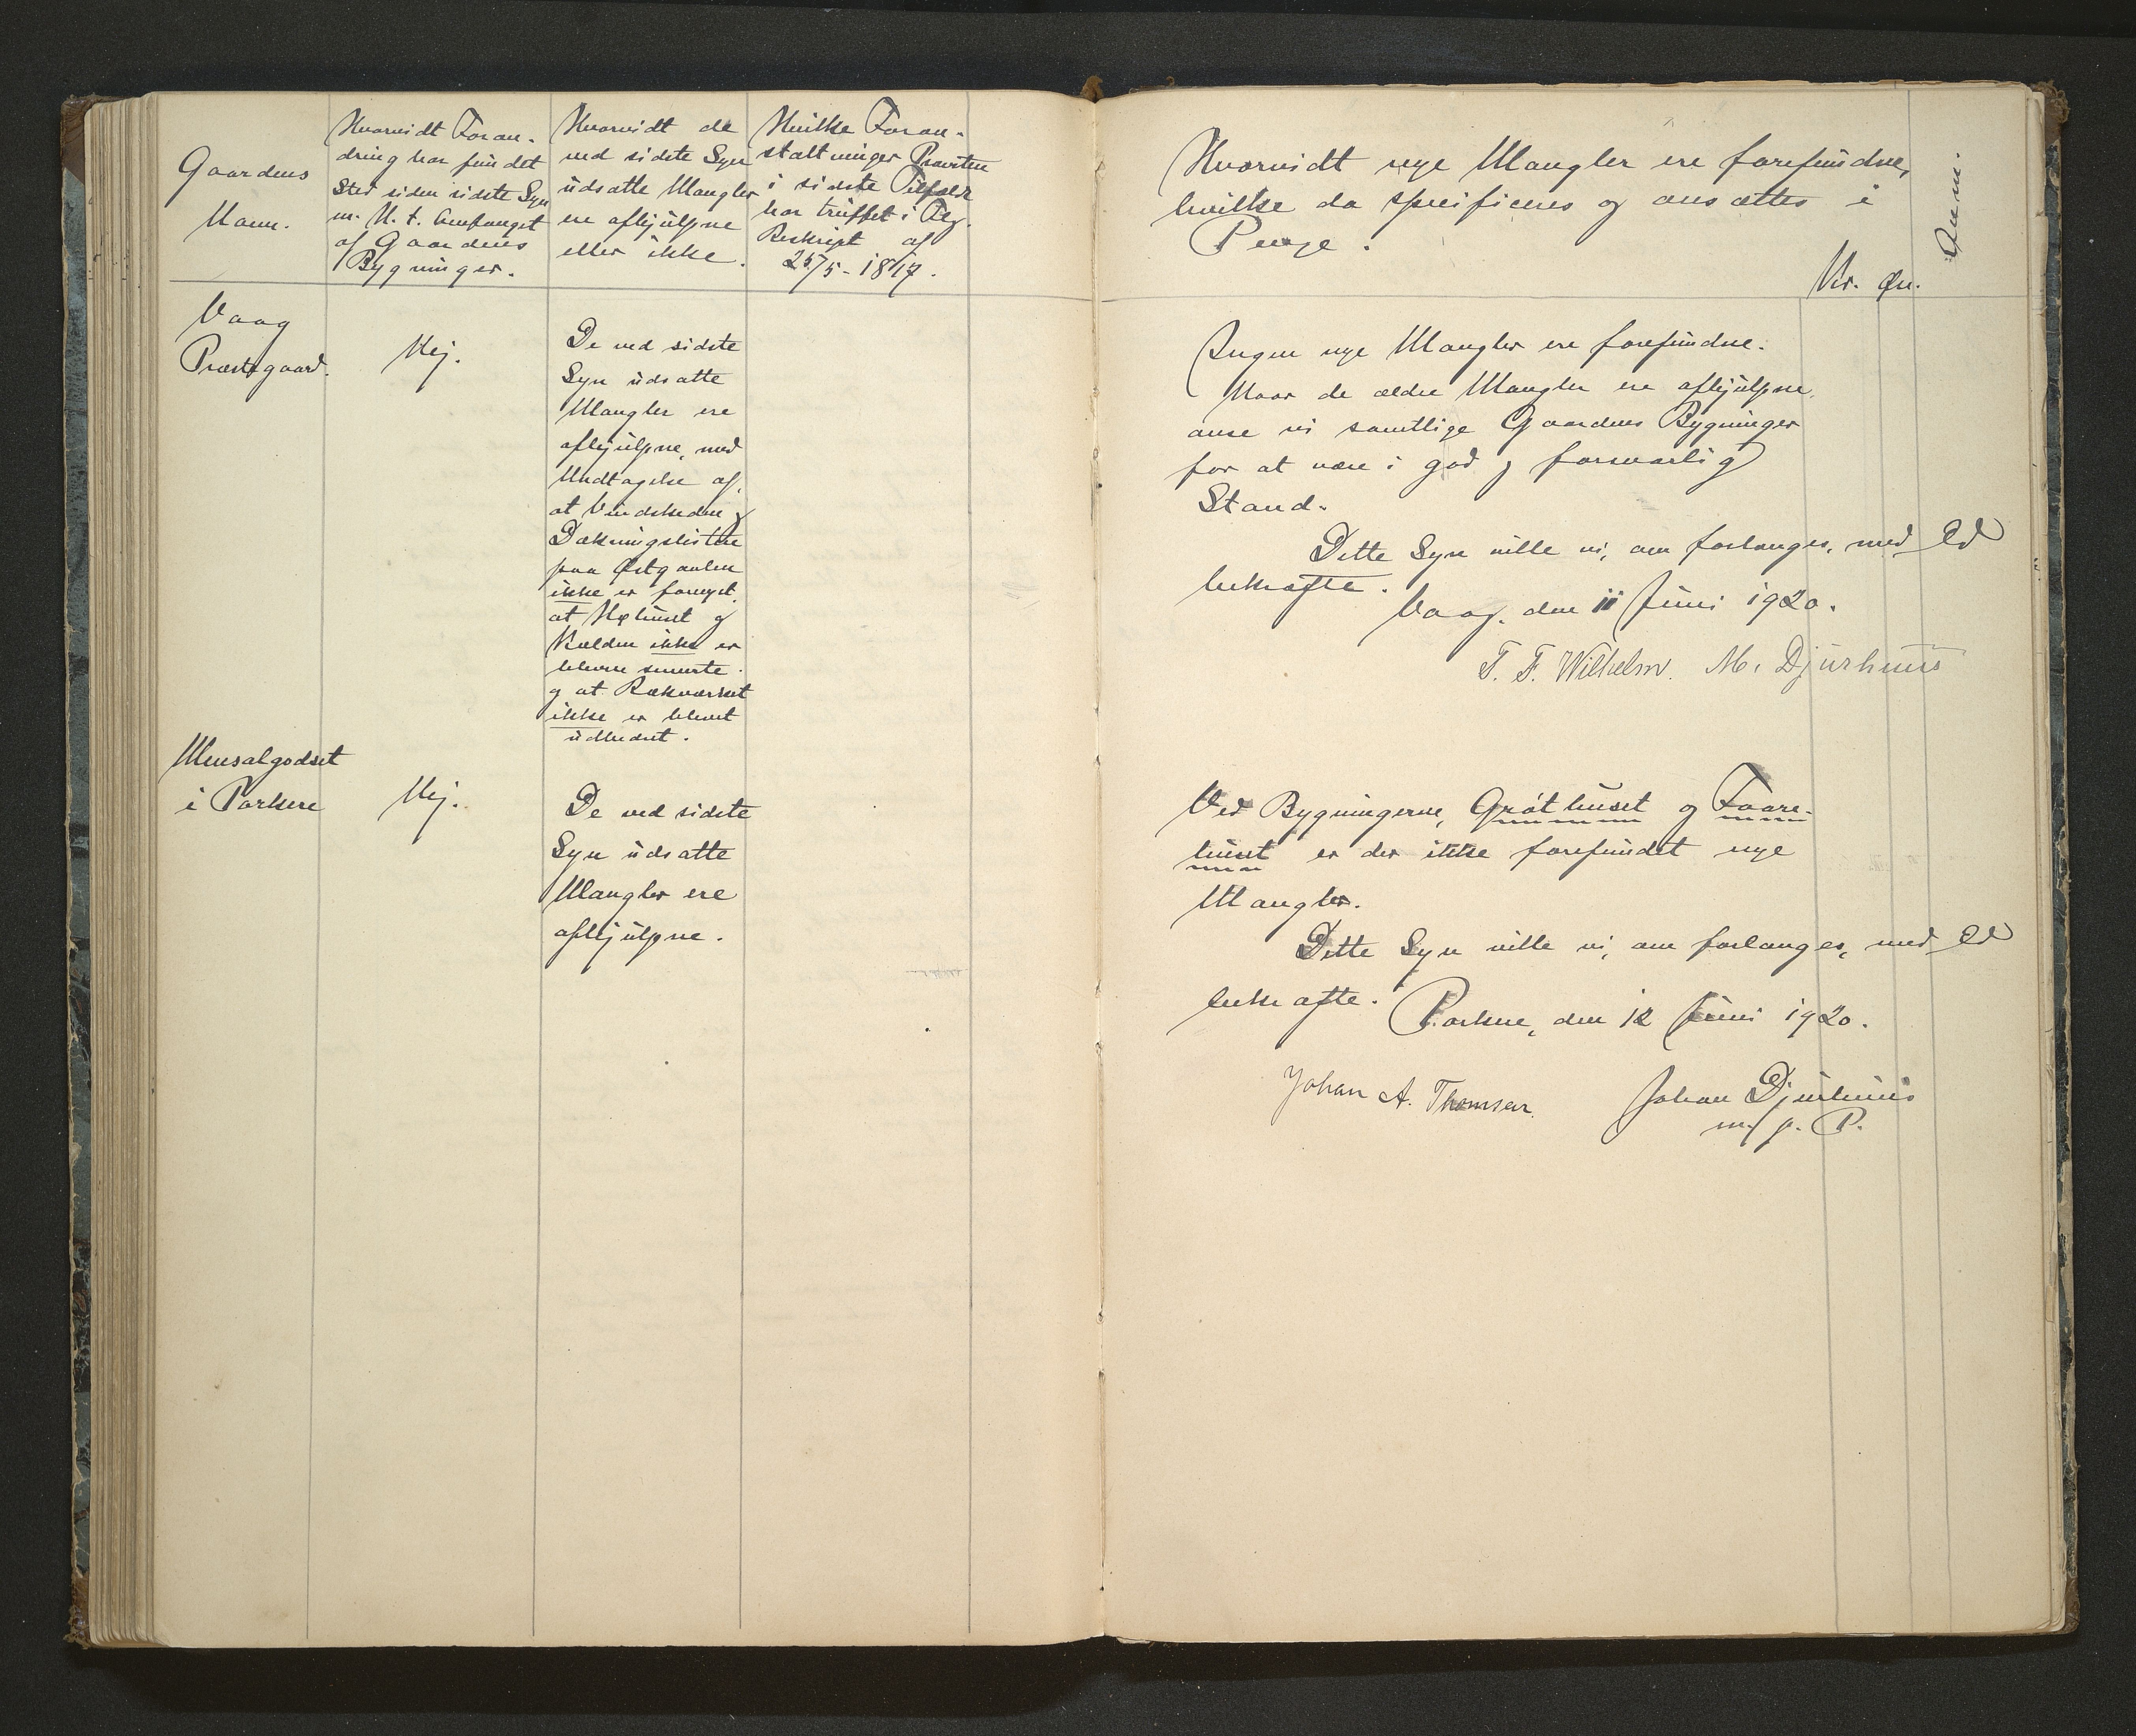 Gaardens
Navn.
Hvorvidt Foran-
dring har fundet
Sted siden sidste Syn
m. H. t. Omfanget
af Gaardens
Bygninger.
Hvorvidt de
ved sidste Syn
udsatte Mangler
ere afhjulpne
eller ikke.
Hvilke Foran-
staltninger Provsten
i sidste Tilfælde
har truffet i Flg.
Reskript af
25/5 - 1817.
Vaag
Præstegaard.
Nej.
De ved sidste
Syn udsatte
Mangler ere
afhjulpne, med
Undtagelse af,
at Vindskeden og
Dækningslisten
paa Østgavlen
ikke er fornyet,
at Høhuset og
Kælden ikke er
blevne smurte.
og at Rækværket
ikke er blevet
udbedret.
Mensalgodset
i Porkere
Nej.
De ved sidste
Syn udsatte
Mangler ere
afhjulpne.
Hvorvidt nye Mangler ere forefundne,
hvilke da specificeres og ansættes i
Penge.
Kr. Øre.
Anm.
Ingen nye Mangler ere forefundne.
Naar de ældre Mangler ere afhjulpne,
anse vi samtlige Gaardens Bygninger
for at være i god og forsvarlig
Stand.
Dette Syn ville vi, om forlanges, med Ed
bekræfte.
Vaag, den 11 Juni 1920.
T. F. Wilhelm. M. Djurhuus
Ved Bygningerne, Gróthuset og Faare-
huset er der ikke forefundet nye
Mangler.
Dette Syn ville vi, om forlanges, med Ed
bekræfte.
Porkere, den 12 Juni 1920.
Johan A. Thomsen.
Johan Djurhuus
m. p. P.